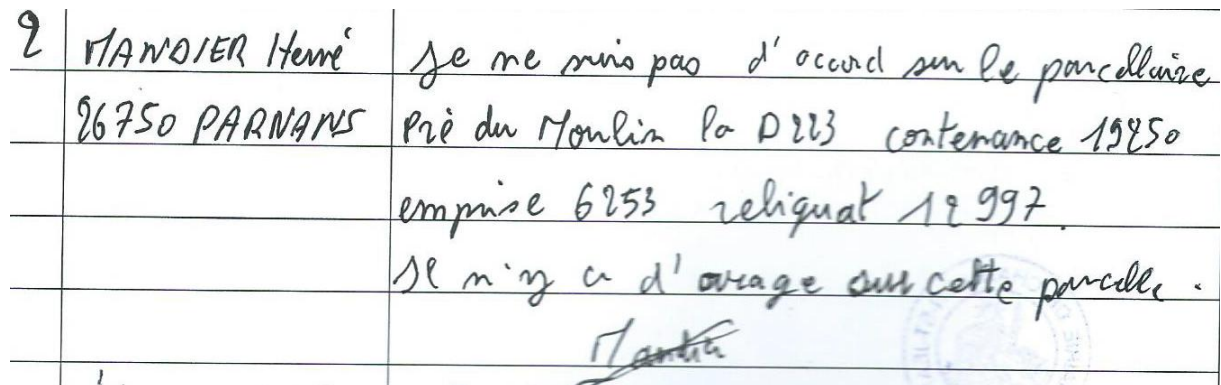 2 MANDIER Hervé Je ne suis pas d'accord sur le parcellaire
26750 PARNANS Pré du Moulin la D223 contenance 19250
emprise 6253 reliquat 12 997
Il n'y a d'ouvrage sur cette parcelle.
Mandier